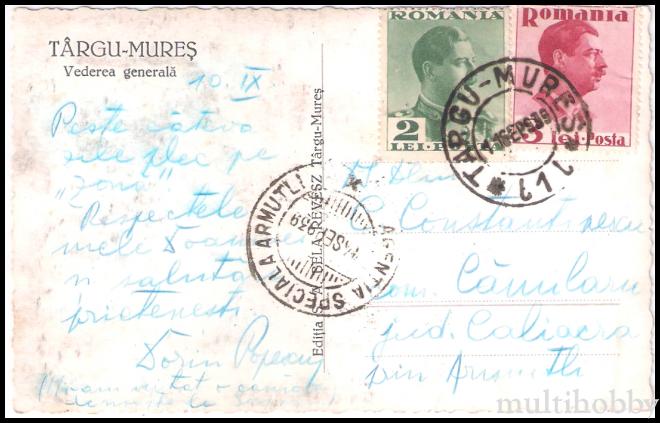 TÂRGU-MUREȘ
Vederea generală
10. IX
Peste câteva
zile plec pe
„Zonă”
Respectele
mele Doamnei
și salută
prietenești
Dorin Popescu
n'am uitat o
Ediția BELA REVESZ Târgu-Mureș
ROMANIA
2
LEI
Romania
3 lei. Posta
TÂRGU-MUREȘ * 1
AGENTIA SPECIALA ARMUTLI *
14 SEP 939
C. Constantinescu
com. Cămularu
jud. Caliacra
prin Armutli
multihobby